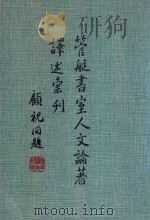 管艇書室人文論著
譯述彙刋
顧祝同題